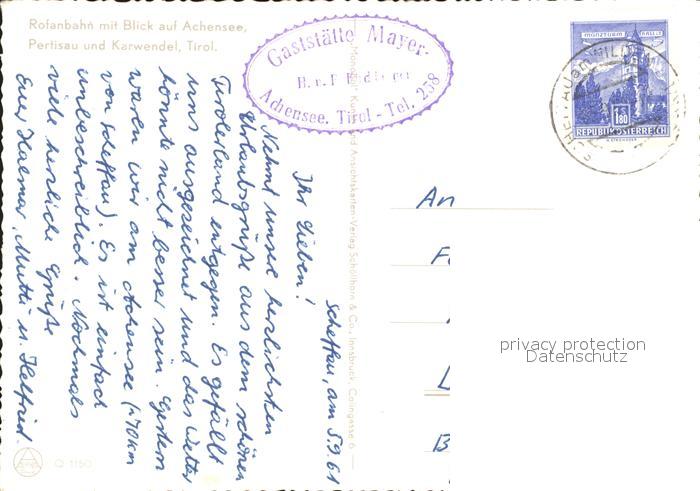 Rofanbahn mit Blick auf Achensee,
Pertisau und Karwendel, Tirol.
Gaststätte Mayer
Achensee, Tirol - Tel. 258
MÜNZTURM HALL
1.80
REPUBLIK ÖSTERREICH
Scheffau, am 5.9.61
Ihr Lieben!
Nehmt unsere herzlichsten
Urlaubsgrüße aus dem schönen
Tirolerland entgegen. Es gefällt
uns ausgezeichnet und das Wetter
könnte nicht besser sein. Gestern
waren wir am Achensee (≈70km
von Scheffau). Es ist einfach
unbeschreiblich. Nochmals
viele herzliche Grüße
Euer Halmar, Mutti u. Helfried.
Kunst- und Ansichtskarten-Verlag Schöllhorn & Co., Innsbruck, Colingasse 6
An
F
L
B
privacy protection
Datenschutz
Q 1150